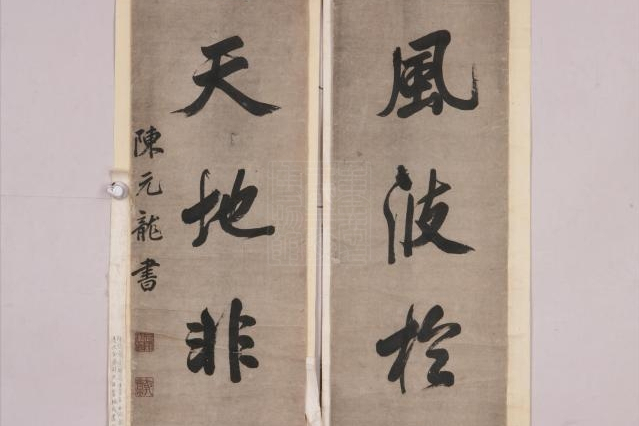 風波於
天地非
陳元龍書